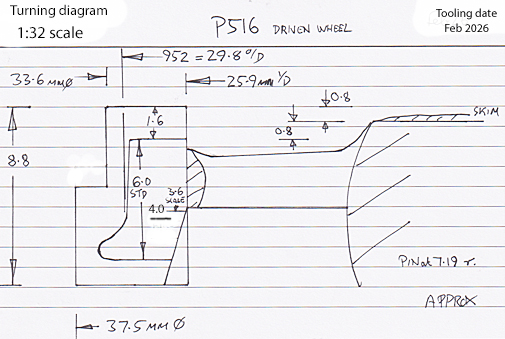 Turning diagram
1:32 scale
P516 DRIVEN WHEEL
Tooling date
Feb 2026
952 = 29.8 O/D
33.6 MM Ø
25.9 MM I/D
0.8
1.6
0.8
SKIM
8.8
6.0
STD
3.6
SCALE
4.0
PIN at 7.19 r.
APPROX
37.5 MM Ø